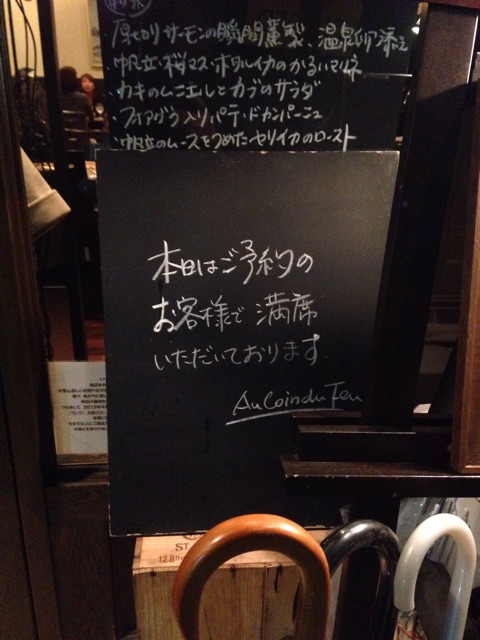 厚切りサーモンの瞬間薫製、温泉卵添え
・帆立・桜マス・ホタルイカのかるいマリネ
・カキのムニエルとカブのサラダ
・フォアグラ入りパテ・ド・カンパーニュ
・帆立のムースをつめたヤリイカのロースト
本日はご予約の
お客様で満席
いただいております。
Au Coin du Feu
ST